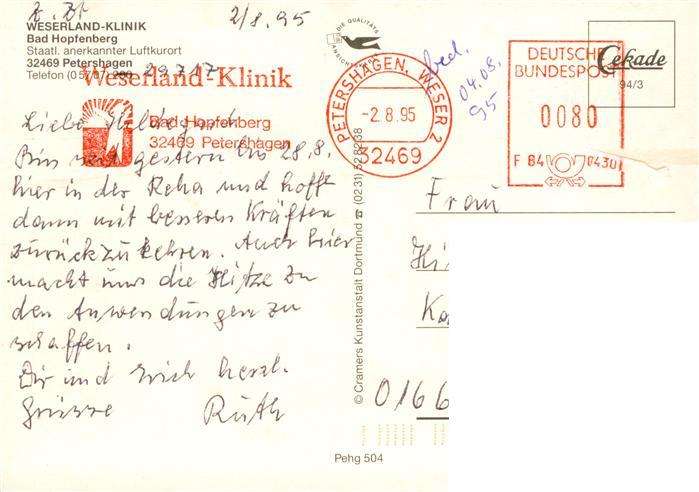 z. Zt. 2/8.95
WESERLAND-KLINIK
Bad Hopfenberg
Staatl. anerkannter Luftkurort
32469 Petershagen
Telefon (0 57 07) 29717
Weserland-Klinik
Bad Hopfenberg
32469 Petershagen
Liebe
Bin seit gestern bis 28.8.
hier in der Reha und hoffe
dann mit besseren Kräften
zurückzukehren. Auch hier
macht uns die Hitze zu
den Anwendungen zu
schaffen.
Dir und Erich herzl.
Grüsse Ruth
DIE QUALITÄTS
ANSICHTS
PETERSHAGEN, WESER 2
-2.8.95
32469
bed.
04.08.
95
DEUTSCHE
BUNDESPOST
0080
F 84 0430
Cekade
94/3
© Cramers Kunstanstalt Dortmund ☎ (0231) 528238
Frau
Hi
Ka
0166
Pehg 504